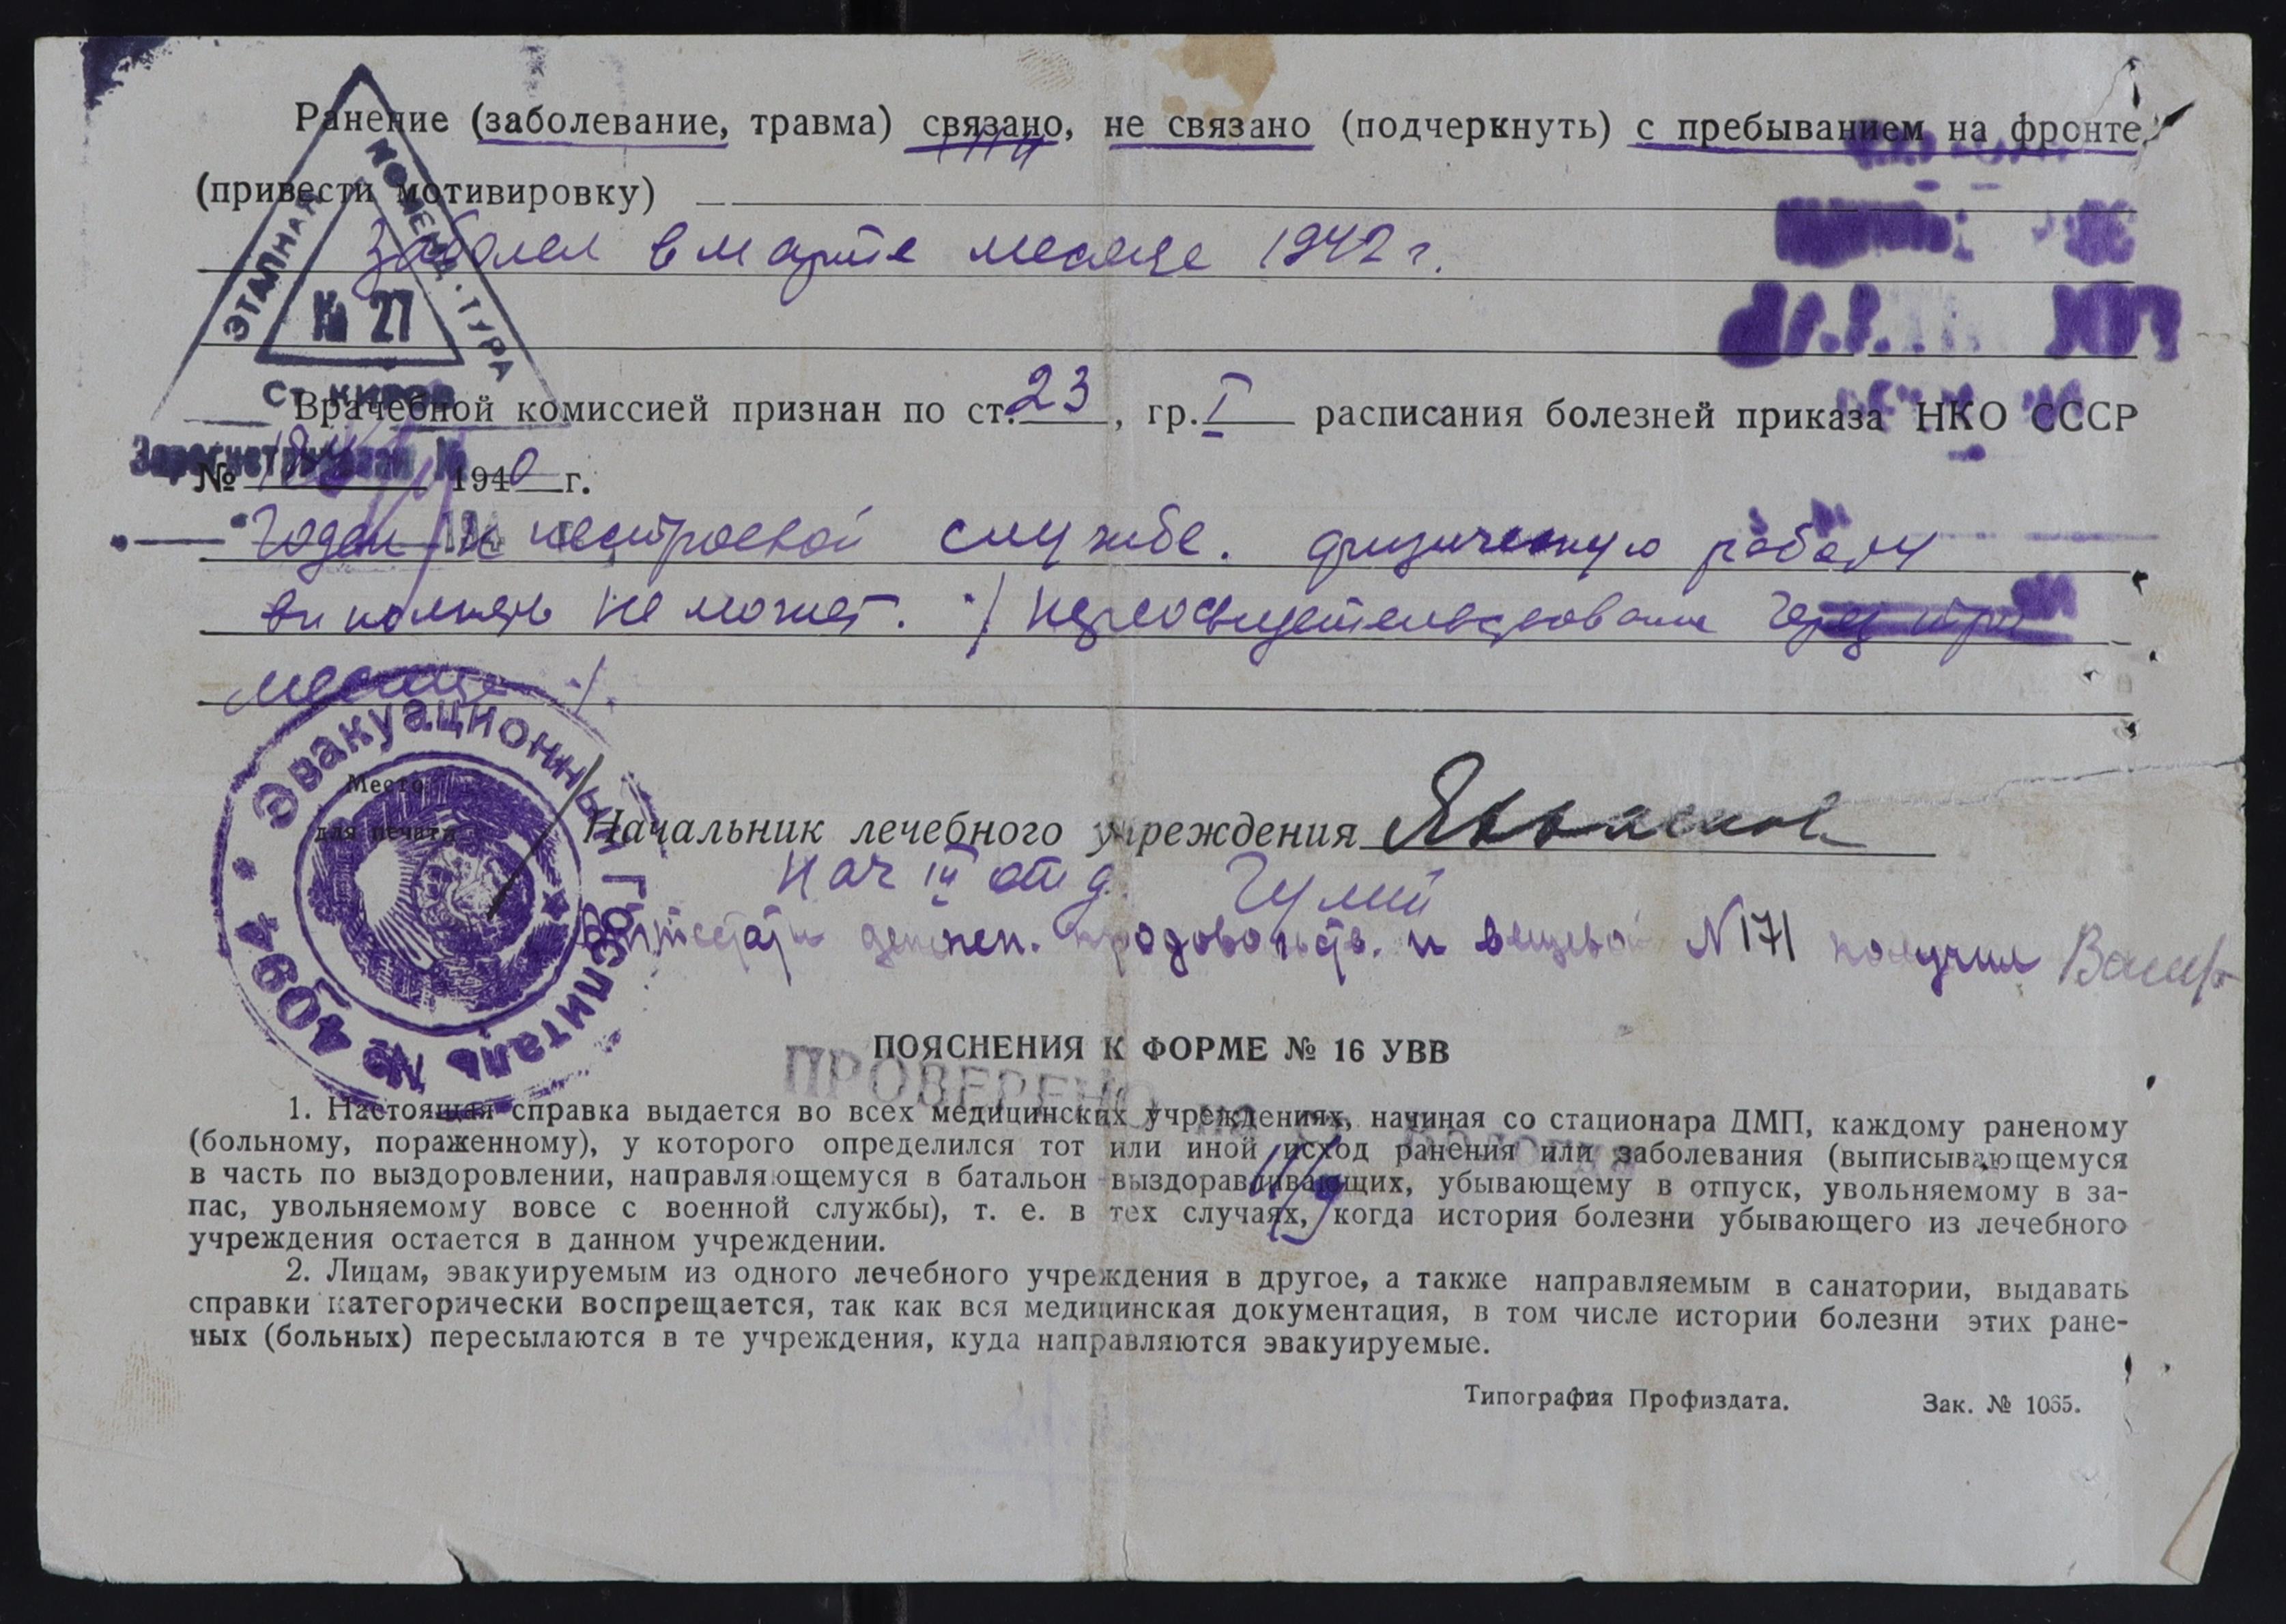 Ранение (заболевание, травма) связано, не связано (подчеркнуть) с пребыванием на фронте
(привести мотивировку)
Заболел в марте месяце 1942 г.
ЭТАПНАЯ КОМЕНД.ТУРА
№ 27
Ст. КИРОВ
Врачебной комиссией признан по ст. 23, гр. I расписания болезней приказа НКО СССР
Зарегистрирован №
№ 184 1940 г.
Годен к нестроевой службе. физическую работу
выполнять не может. /Переосвидетельствование через три
месяца/.
Эвакуационный Госпиталь № 4094
Место
для печати
Начальник лечебного учреждения
Нач III отд.
Аттестаты денежн. продовольств. и вещевой N171 получил
ПОЯСНЕНИЯ К ФОРМЕ № 16 УВВ
ПРОВЕРЕНО
1. Настоящая справка выдается во всех медицинских учреждениях, начиная со стационара ДМП, каждому раненому
(больному, пораженному), у которого определился тот или иной исход ранения или заболевания (выписывающемуся
в часть по выздоровлении, направляющемуся в батальон выздоравливающих, убывающему в отпуск, увольняемому в за-
пас, увольняемому вовсе с военной службы), т. е. в тех случаях, когда история болезни убывающего из лечебного
учреждения остается в данном учреждении.
2. Лицам, эвакуируемым из одного лечебного учреждения в другое, а также направляемым в санатории, выдавать
справки категорически воспрещается, так как вся медицинская документация, в том числе истории болезни этих ране-
ных (больных) пересылаются в те учреждения, куда направляются эвакуируемые.
Типография Профиздата. Зак. № 1065.